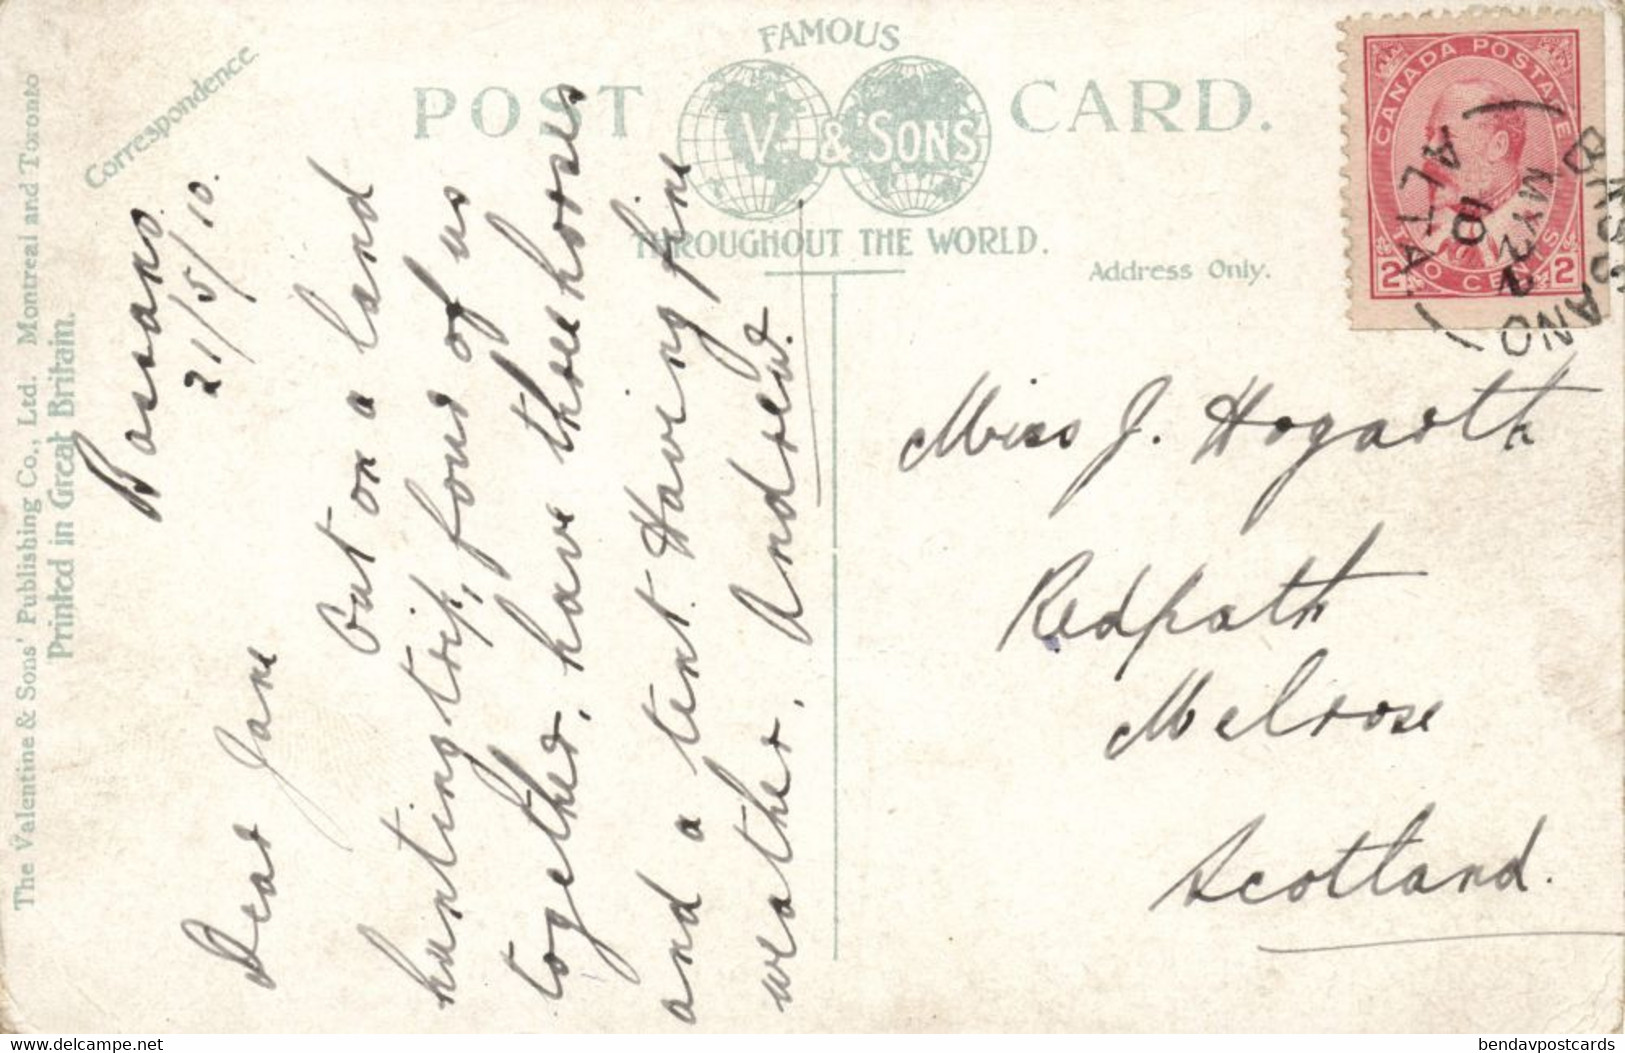 FAMOUS
POST CARD.
V. & SONS
THROUGHOUT THE WORLD.
Correspondence.
Address Only.
The Valentine & Sons' Publishing Co., Ltd. Montreal and Toronto
Printed in Great Britain.
Bassano
21/5/10.
Dear Jane
Out on a land
hunting trip, four of us
together, have three horses
and a tent. Having fine
weather. Andrew.
Miss J. Hogarth
Redpath
Melrose
Scotland.
CANADA POSTAGE
2 TWO CENTS 2
BASSANO
MY 22
10
ALTA.
Back
bendavpostcards